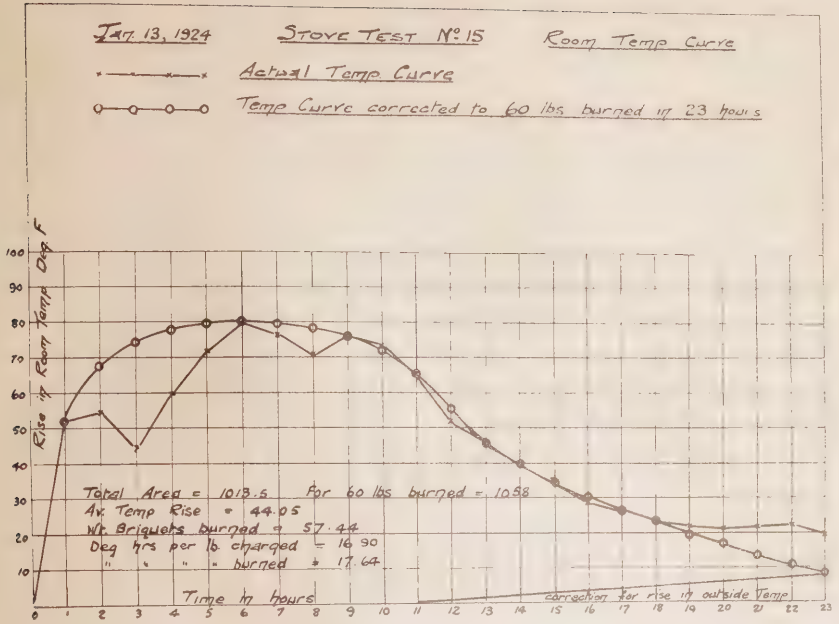 Jan. 13, 1924 STOVE TEST Nº 15 Room Temp Curve
Actual Temp Curve
Temp Curve corrected to 60 lbs burned in 23 hours
Rise in Room Temp Deg. F
100
90
80
70
60
50
40
30
20
10
Total Area = 1013.5 For 60 lbs burned = 1058
Av. Temp Rise = 44.05
Wt. Briquets burned = 57.44
Deg hrs per lb charged = 16 90
" " " " burned = 17.64
Time in hours correction for rise in outside Temp
0 1 2 3 4 5 6 7 8 9 10 11 12 13 14 15 16 17 18 19 20 21 22 23